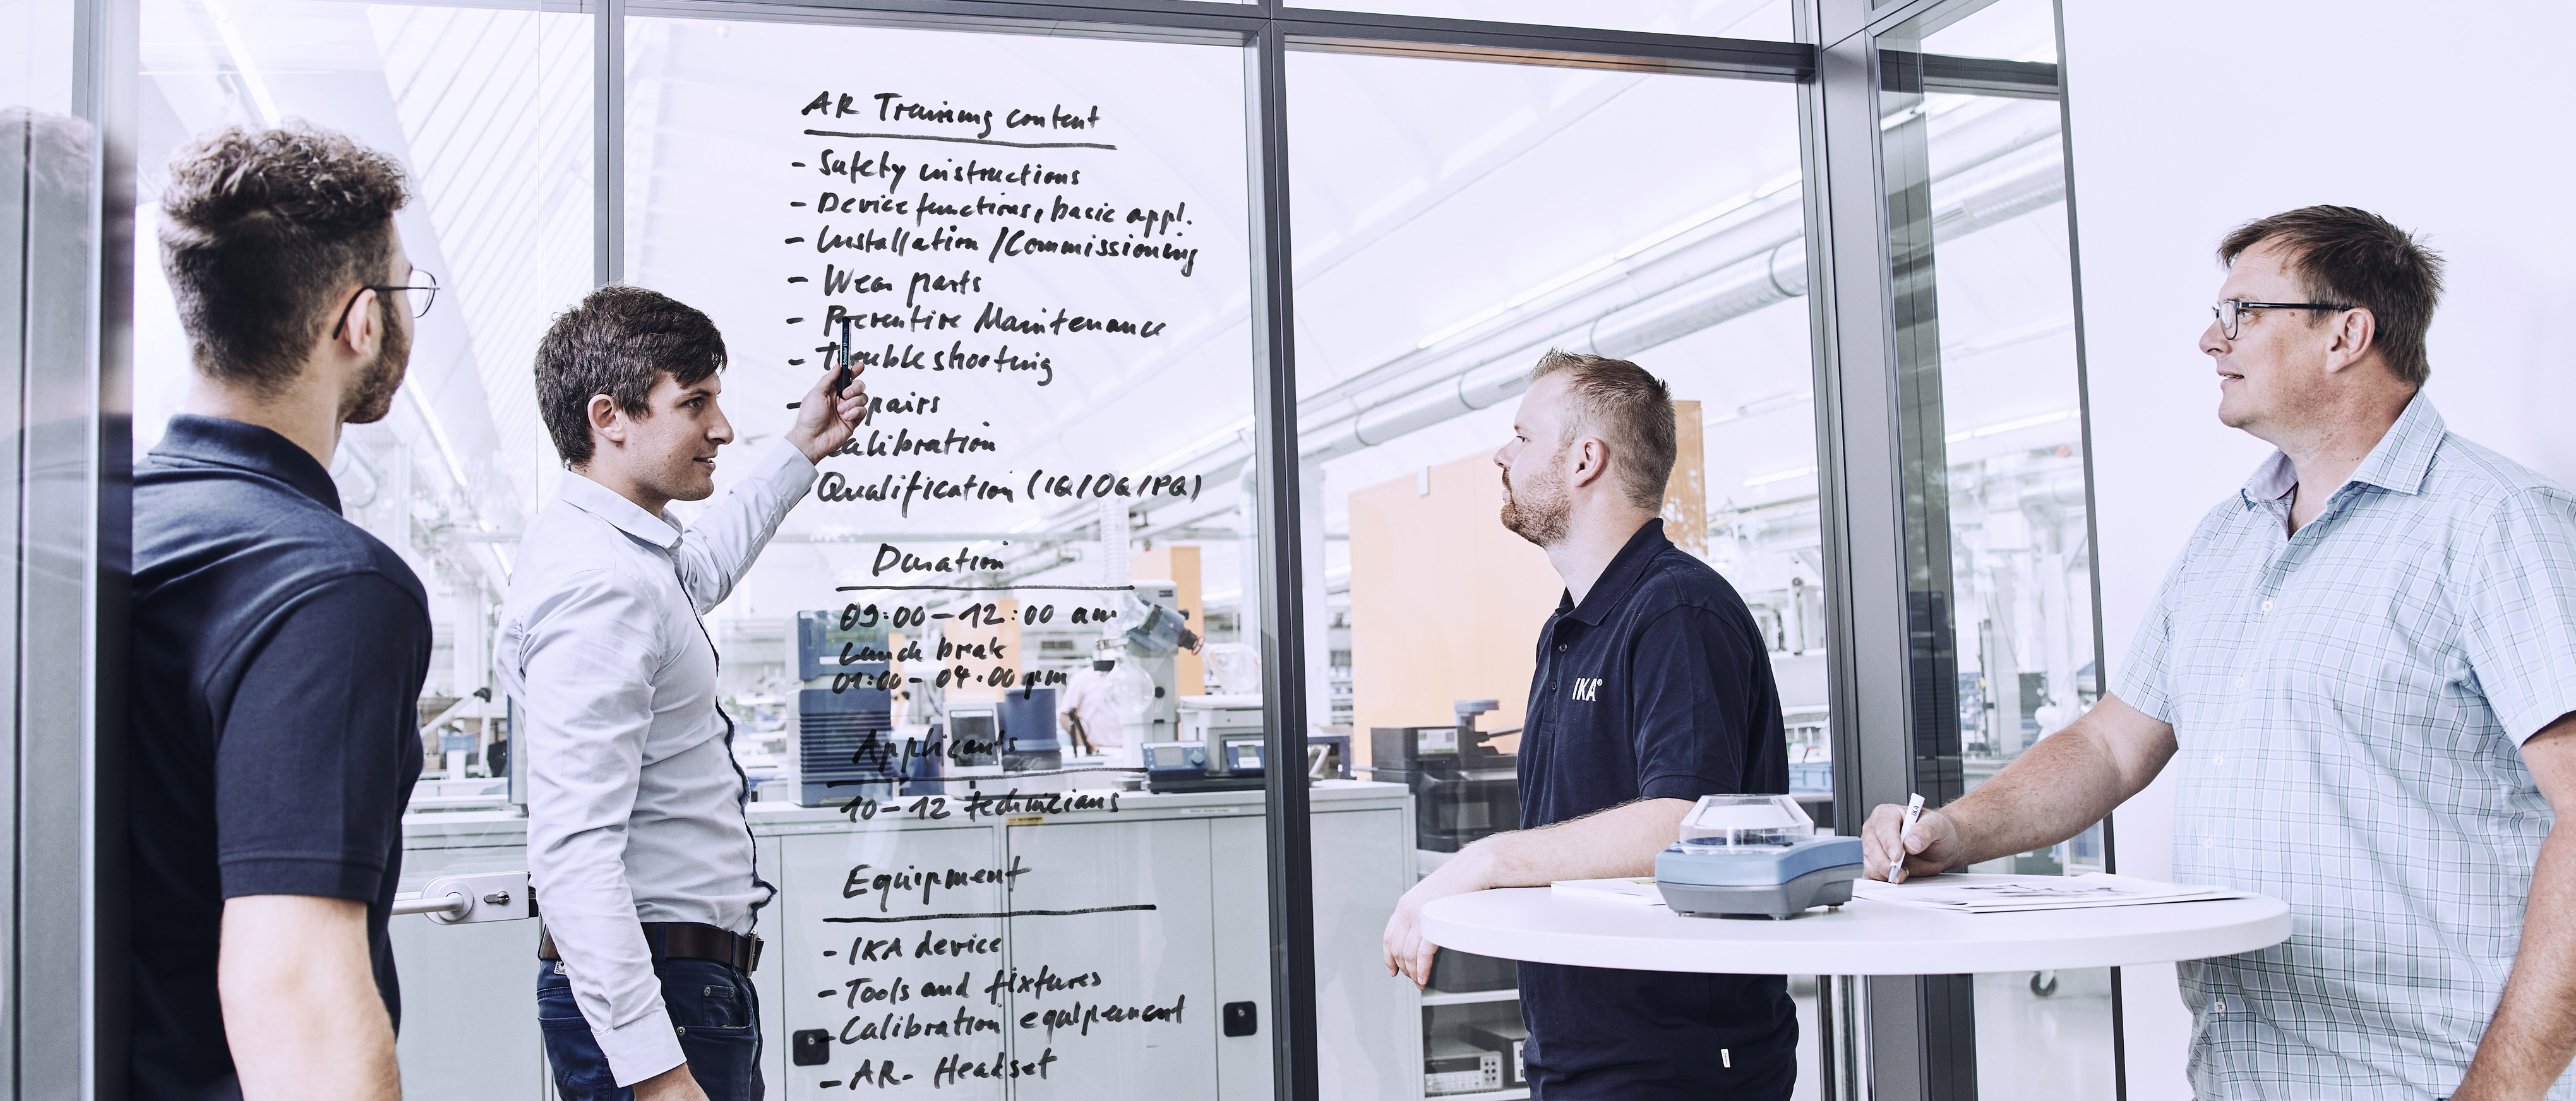 AR Training content
- Safety instructions
- Device functions, basic appl.
- Installation / Commissioning
- Wear parts
- Preventive Maintenance
- Troubleshooting
- pairs
calibration
Qualification (IQ/OQ/PQ)
Duration
09:00-12:00 am
Lunch break
01:00-04.00 pm
Applicants
10-12 technicians
Equipment
- IKA device
- Tools and fixtures
- Calibration equipement
- AR-Headset
IKA®
IKA